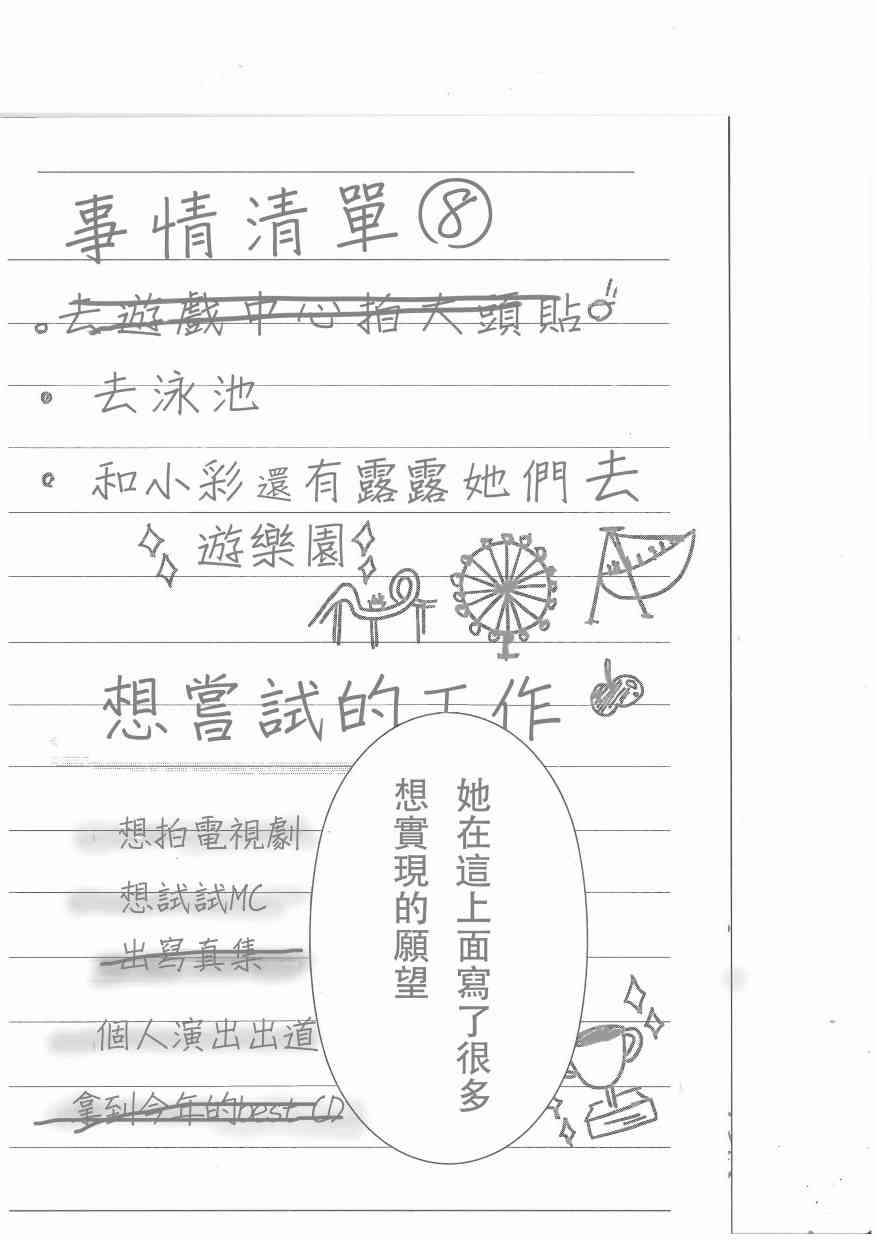 事情清單⑧
去遊戲中心拍大頭貼
去泳池
和小彩還有露露她們去
遊樂園
想嘗試的工作
想拍電視劇
想試試MC
出寫真集
個人演出出道
拿到今年的best CD
她在這上面寫了很多
想實現的願望